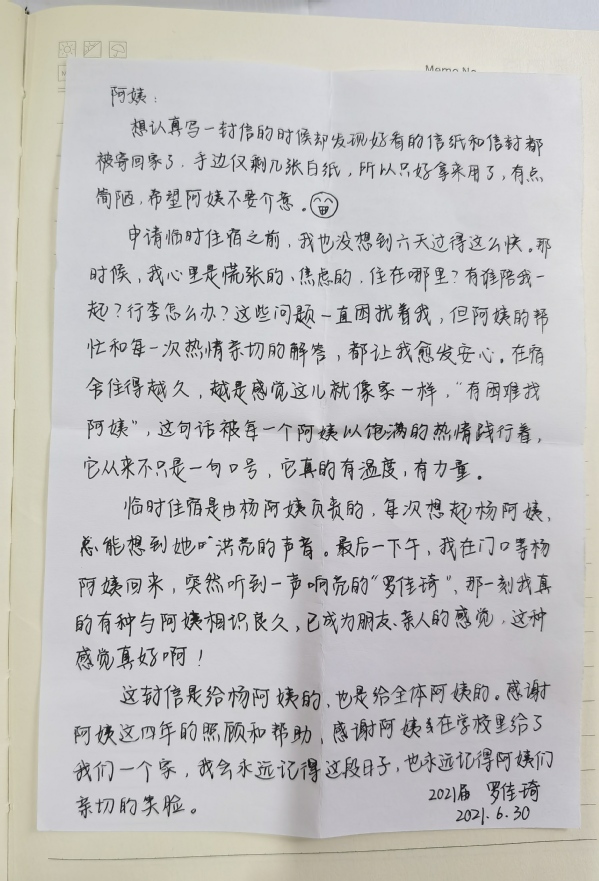 Memo No
阿姨：
想认真写一封信的时候却发现好看的信纸和信封都
被寄回家了，手边仅剩几张白纸，所以只好拿来用了，有点
简陋，希望阿姨不要介意。
申请临时住宿之前，我也没想到六天过得这么快。那
时候，我心里是慌张的、焦虑的，住在哪里？有谁陪我一
起？行李怎么办？这些问题一直困扰着我，但阿姨的帮
忙和每一次热情亲切的解答，都让我愈发安心。在宿
舍住得越久，越是感觉这儿就像家一样，“有困难找
阿姨”，这句话被每一个阿姨以饱满的热情践行着，
它从来不只是一句口号，它真的有温度，有力量。
临时住宿是由杨阿姨负责的，每次想起杨阿姨，
总能想到她洪亮的声音。最后一下午，我在门口等杨
阿姨回来，突然听到一声响亮的“罗佳琦”，那一刻我真
的有种与阿姨相识良久，已成为朋友、亲人的感觉，这种
感觉真好啊！
这封信是给杨阿姨的，也是给全体阿姨的。感谢
阿姨这四年的照顾和帮助，感谢阿姨在学校里给了
我们一个家，我会永远记得这段日子，也永远记得阿姨们
亲切的笑脸。
2021届 罗佳琦
2021.6.30